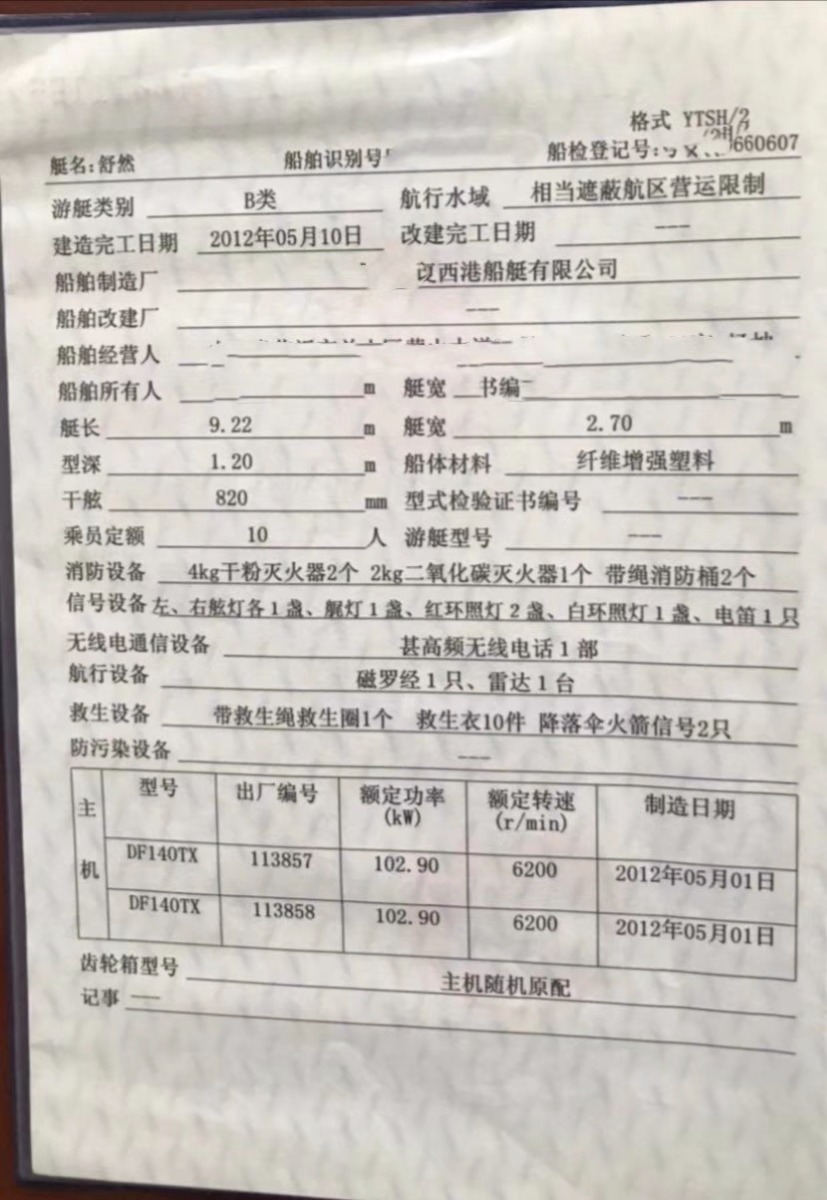 格式 YTSH/2
艇名:舒然 船舶识别号 船检登记号: 660607
游艇类别 B类 航行水域 相当遮蔽航区营运限制
建造完工日期 2012年05月10日 改建完工日期 ---
船舶制造厂 西港船艇有限公司
船舶改建厂 ---
船舶经营人
船舶所有人 m 艇宽 书编
艇长 9.22 m 艇宽 2.70 m
型深 1.20 m 船体材料 纤维增强塑料
干舷 820 mm 型式检验证书编号 ---
乘员定额 10 人 游艇型号 ---
消防设备 4kg干粉灭火器2个 2kg二氧化碳灭火器1个 带绳消防桶2个
信号设备 左、右舷灯各1盏、艉灯1盏、红环照灯2盏、白环照灯1盏、电笛1只
无线电通信设备 甚高频无线电话1部
航行设备 磁罗经1只、雷达1台
救生设备 带救生绳救生圈1个 救生衣10件 降落伞火箭信号2只
防污染设备 ---
主机 型号 出厂编号 额定功率(kW) 额定转速(r/min) 制造日期
DF140TX 113857 102.90 6200 2012年05月01日
DF140TX 113858 102.90 6200 2012年05月01日
齿轮箱型号 主机随机原配
记事 ---